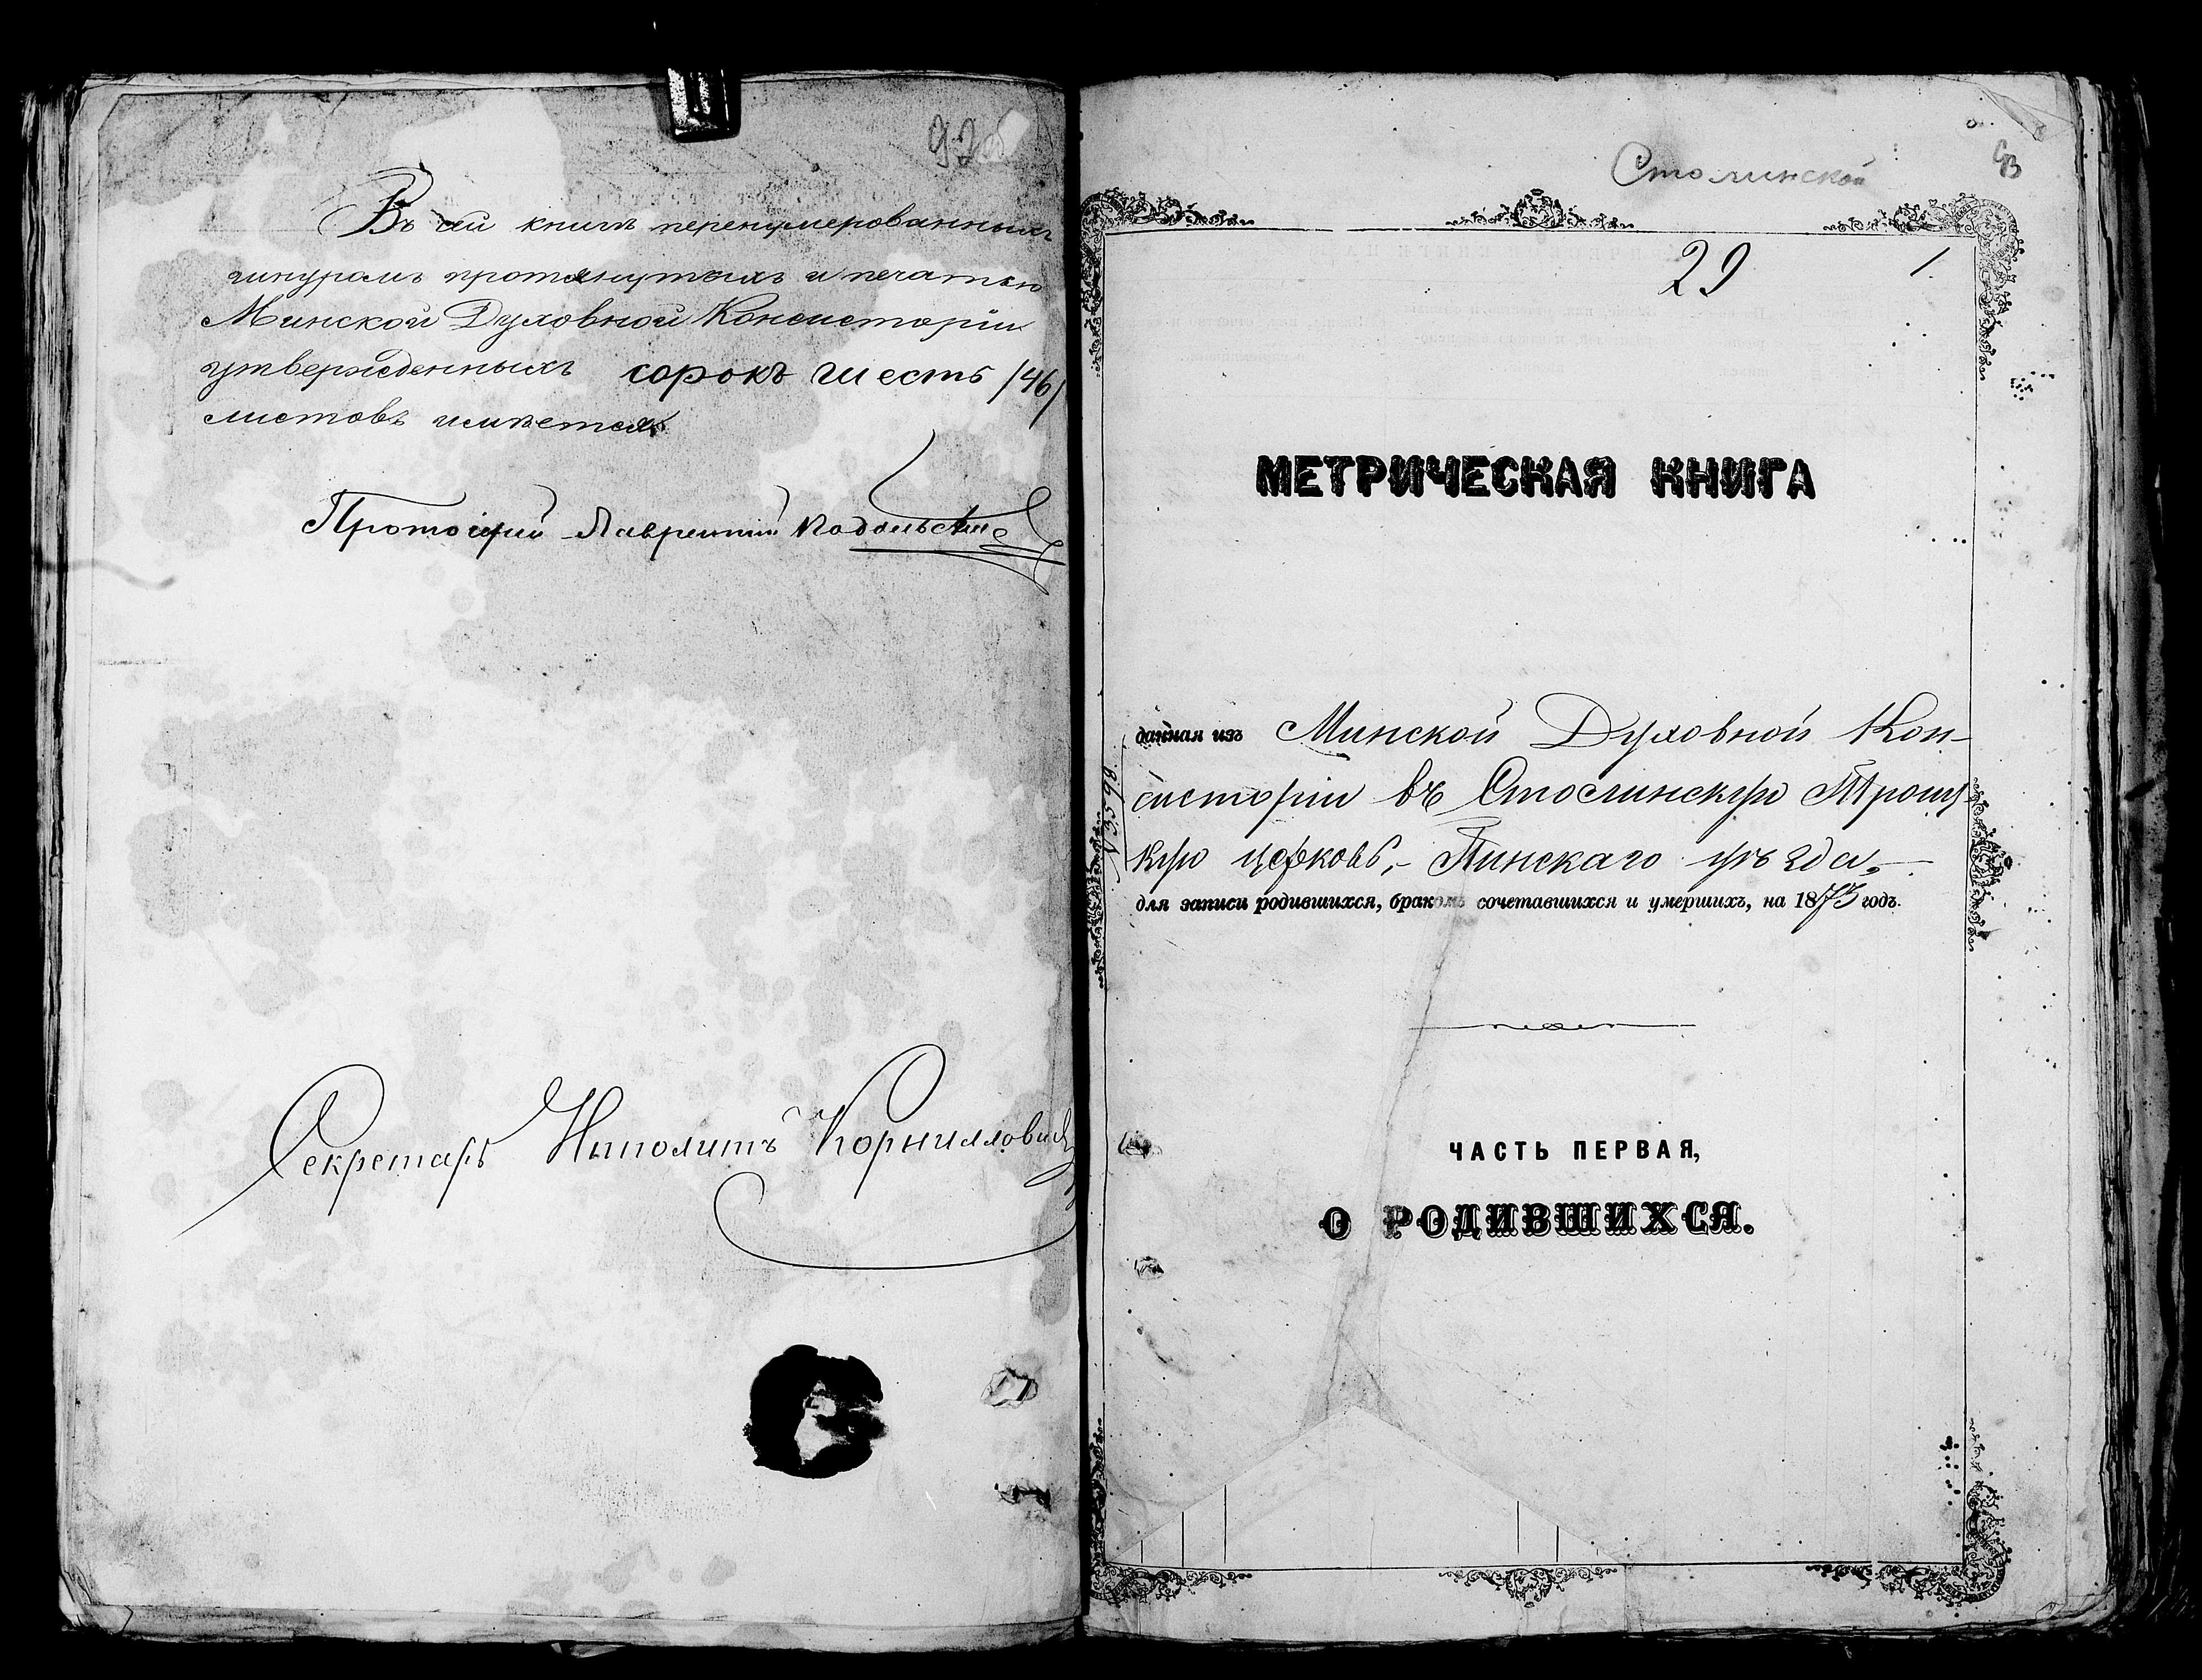 Въ сей книгѣ перенумерованныхъ
шнуромъ протянутыхъ и печатью
Минской Духовной Консисторіи
утвержденныхъ сорокъ шесть /46/
листовъ имѣется.
Протоіерей Лаврентій Подольскій
Секретарь Иполитъ Корниллович
Столинской
93
29
1.
МЕТРИЧЕСКАЯ КНИГА
данная изъ Минской Духовной Кон-
систоріи въ Столинскую Трои
кую церковь, Пинскаго уѣзда
для записи родившихся, бракомъ сочетавшихся и умершихъ, на 1873 годъ.
№ 3598.
ЧАСТЬ ПЕРВАЯ,
О РОДИВШИХСЯ.